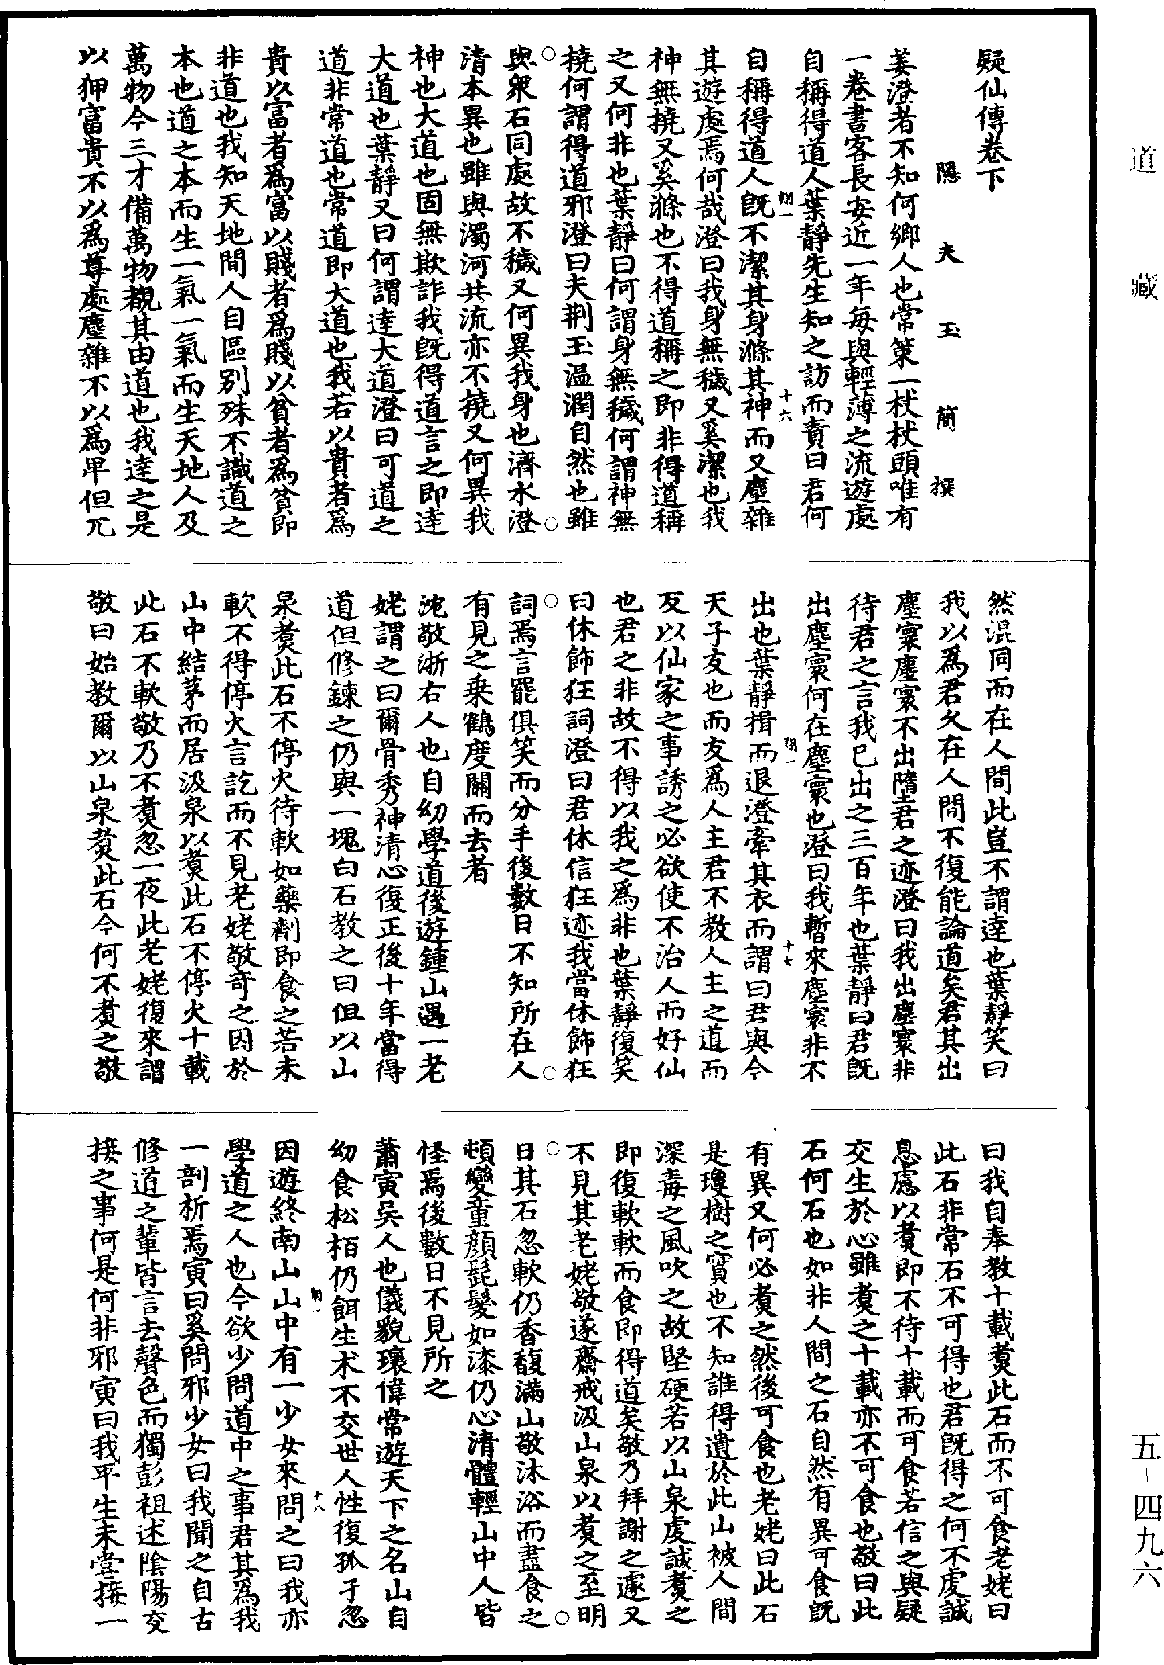 道藏
疑仙傳卷下
隱夫玉簡撰
姜澄者不知何鄉人也常策一杖杖頭唯有
一卷書客長安近一年每與輕薄之流遊處
自稱得道人葉靜先生知之訪而責曰君何
自稱得道人旣不潔其身滌其神而又塵雜
其遊處焉何哉澄曰我身無穢又奚潔也我
神無撓又奚滌也不得道稱之即非得道稱
之又何非也葉靜曰何謂身無穢何謂神無
撓何謂得道邪澄曰夫荆玉温潤自然也雖
與衆石同處故不穢又何異我身也濟水澄
清本異也雖與濁河共流亦不撓又何異我
神也大道也固無欺詐我旣得道言之即達
大道也葉靜又曰何謂達大道澄曰可道之
道非常道也常道即大道也我若以貴者爲
貴以富者爲富以賤者爲賤以貧者爲貧即
非道也我知天地間人自區别殊不識道之
本也道之本而生一氣一氣而生天地人及
萬物今三才備萬物覩其由道也我達之是
以狎富貴不以爲尊處塵雜不以爲卑但兀
然混同而在人間此豈不謂達也葉靜笑曰
我以爲君久在人間不復能論道矣君其出
塵寰塵寰不出隳君之迹澄曰我出塵寰非
待君之言我已出之三百年也葉靜曰君旣
出塵寰何在塵寰也澄曰我暫來塵寰非不
出也葉靜揖而退澄牽其衣而謂曰君與今
天子友也而友爲人主君不教人主之道而
反以仙家之事誘之必欲使不治人而好仙
也君之非故不得以我之爲非也葉靜復笑
曰休飾狂詞澄曰君休信狂迹我當休飾狂
詞焉言罷俱笑而分手後數日不知所在人
有見之乘鶴度關而去者
沈敬浙右人也自幼學道後遊鍾山遇一老
姥謂之曰爾骨秀神清心復正後十年當得
道但修鍊之仍與一塊白石教之曰但以山
泉煑此石不停火待軟如藥劑即食之若未
軟不得停火言訖而不見老姥敬奇之因於
山中結茅而居汲泉以煑此石不停火十載
此石不軟敬乃不煑忽一夜此老姥復來謂
敬曰始教爾以山泉煑此石今何不煑之敬
曰我自奉教十載煑此石而不可食老姥曰
此石非常石不可得也君旣得之何不虔誠
息慮以煑即不待十載而可食若信之與疑
交生於心雖煑之十載亦不可食也敬曰此
石何石也如非人間之石自然有異可食旣
有異又何必煑之然後可食也老姥曰此石
是瓊樹之實也不知誰得遺於此山被人間
深毒之風吹之故堅硬若以山泉虔誠煑之
即復軟軟而食即得道矣敬乃拜謝之遽又
不見其老姥敬遂齋戒汲山泉以煑之至明
日其石忽軟仍香馥滿山敬沐浴而盡食之
頓變童顔髭髮如漆仍心清體輕山中人皆
怪焉後數日不見所之
蕭寅吳人也儀貌瓌偉常遊天下之名山自
幼食松栢仍餌生术不交世人性復孤子忽
因遊終南山山中有一少女來問之曰我亦
學道之人也今欲少問道中之事君其爲我
一剖析焉寅曰奚問邪少女曰我聞之自古
修道之輩皆言去聲色而獨彭祖述陰陽交
接之事何是何非邪寅曰我平生未嘗接一
五-四九六